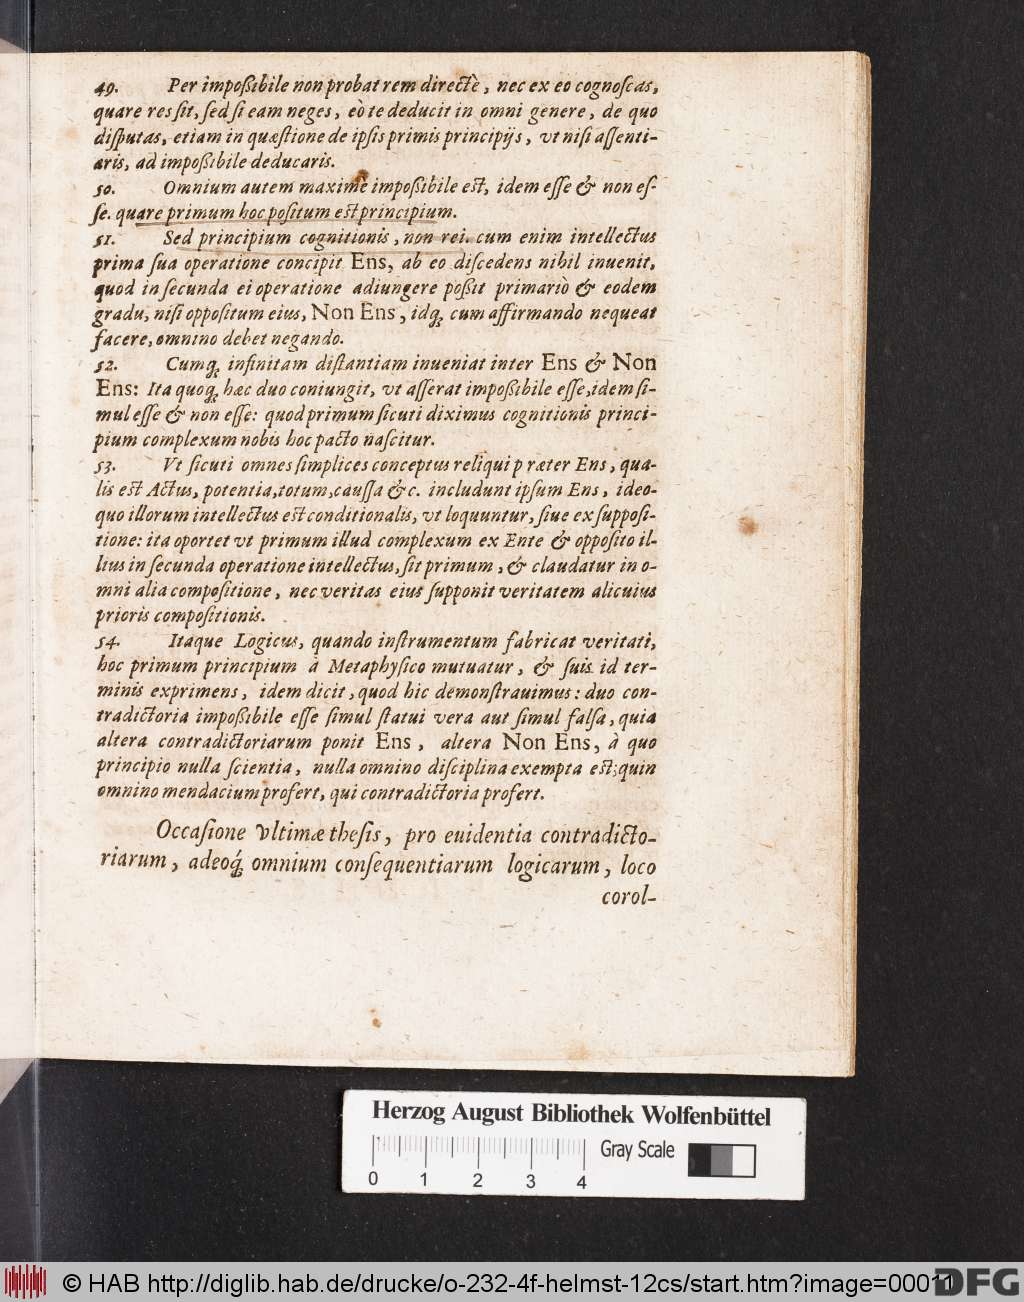 49. Per impoßibile non probat rem directè, nec ex eo cognoscas,
quare res sit, sed si eam neges, eò te deducit in omni genere, de quo
disputas, etiam in quæstione de ipsis primis principijs, vt nisi assenti-
aris, ad impoßibile deducaris.
50. Omnium autem maximè impoßibile est, idem esse & non es-
se. quare primum hoc positum est principium.
51. Sed principium cognitionis, non rei. cum enim intellectus
prima sua operatione concipit Ens, ab eo discedens nihil inuenit,
quod in secunda ei operatione adiungere poßit primariò & eodem
gradu, nisi oppositum eius, Non Ens, idq́; cum affirmando nequeat
facere, omnino debet negando.
52. Cumq́; infinitam distantiam inueniat inter Ens & Non
Ens: Ita quoq́; hæc duo coniungit, vt asserat impoßibile esse, idem si-
mul esse & non esse: quod primum sicuti diximus cognitionis princi-
pium complexum nobis hoc pacto nascitur.
53. Vt sicuti omnes simplices conceptus reliqui præter Ens, qua-
lis est Actus, potentia, totum, caussa &c. includunt ipsum Ens, ideo-
quo illorum intellectus est conditionalis, vt loquuntur, siue ex supposi-
tione: ita oportet vt primum illud complexum ex Ente & opposito il-
lius in secunda operatione intellectus, sit primum, & claudatur in o-
mni alia compositione, nec veritas eius supponit veritatem alicuius
prioris compositionis.
54. Itaque Logicus, quando instrumentum fabricat veritati,
hoc primum principium à Metaphysico mutuatur, & suis id ter-
minis exprimens, idem dicit, quod hic demonstrauimus: duo con-
tradictoria impoßibile esse simul statui vera aut simul falsa, quia
altera contradictoriarum ponit Ens, altera Non Ens, à quo
principio nulla scientia, nulla omnino disciplina exempta est; quin
omnino mendacium profert, qui contradictoria profert.
Occasione vltimæ thesis, pro euidentia contradicto-
riarum, adeoq́; omnium consequentiarum logicarum, loco
corol-
Herzog August Bibliothek Wolfenbüttel
Gray Scale
0 1 2 3 4
© HAB http://diglib.hab.de/drucke/o-232-4f-helmst-12cs/start.htm?image=00011
DFG